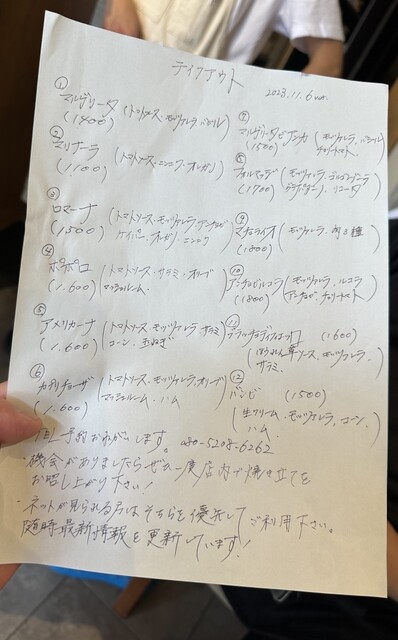 テイクアウト
2023.11.6 ver.
① マルゲリータ
(1400) (トマトソース・モッツァレラ・バジル)
② マリナーラ
(1100) (トマトソース・ニンニク・オレガノ)
③ ロマーナ
(1500) (トマトソース・モッツァレラ・アンチョビ
ケイパー・オレガノ・ニンニク)
④ ポポロ
(1.600) (トマトソース・サラミ・オリーブ
マッシュルーム)
⑤ アメリカーナ
(1.600) (トマトソース・モッツァレラ・サラミ
コーン・玉ねぎ)
⑥ カプリチョーザ
(1.600) (トマトソース・モッツァレラ・オリーブ
マッシュルーム・ハム)
⑦ マルゲリータビアンカ
(1500) (モッツァレラ・バジル
チェリートマト)
⑧
(1700) (モッツァレラ・
リコッタ)
⑨
(1800) (モッツァレラ・
⑩ アンチョビルコラ
(1800) (モッツァレラ・ルコラ
アンチョビ・チェリートマト)
⑪
(1600)
(ほうれん草ソース・モッツァレラ・
サラミ)
⑫ バンビ
(1500)
(生クリーム・モッツァレラ・コーン・
ハム)
TEL予約お願いします。 080-5208-6262
・機会がありましたらぜひ一度店内で焼き立てを
お召し上がり下さい!
・ネットが見られる方はそちらを優先してご利用下さい。
随時最新情報を更新しています!